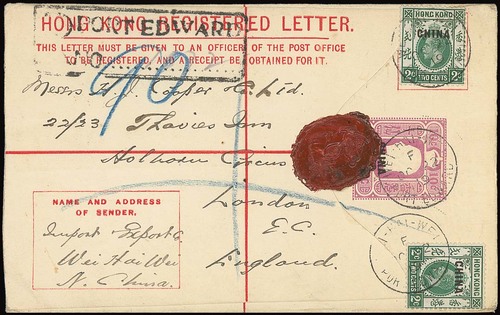 HONG KONG REGISTERED LETTER.
PORT EDWARD
THIS LETTER MUST BE GIVEN TO AN OFFICER OF THE POST OFFICE
TO BE REGISTERED, AND A RECEIPT BE OBTAINED FOR IT.
90
HONG KONG
CHINA
TWO CENTS
Messrs H. J. Cooper Co. Ltd.
22/23 Thavies Inn
Holborn Circus
London
E.C.
England.
CHINA
NAME AND ADDRESS
OF SENDER.
Import Export Co
Wei Hai Wei
N. China.
HONG KONG
CHINA
TWO CENTS